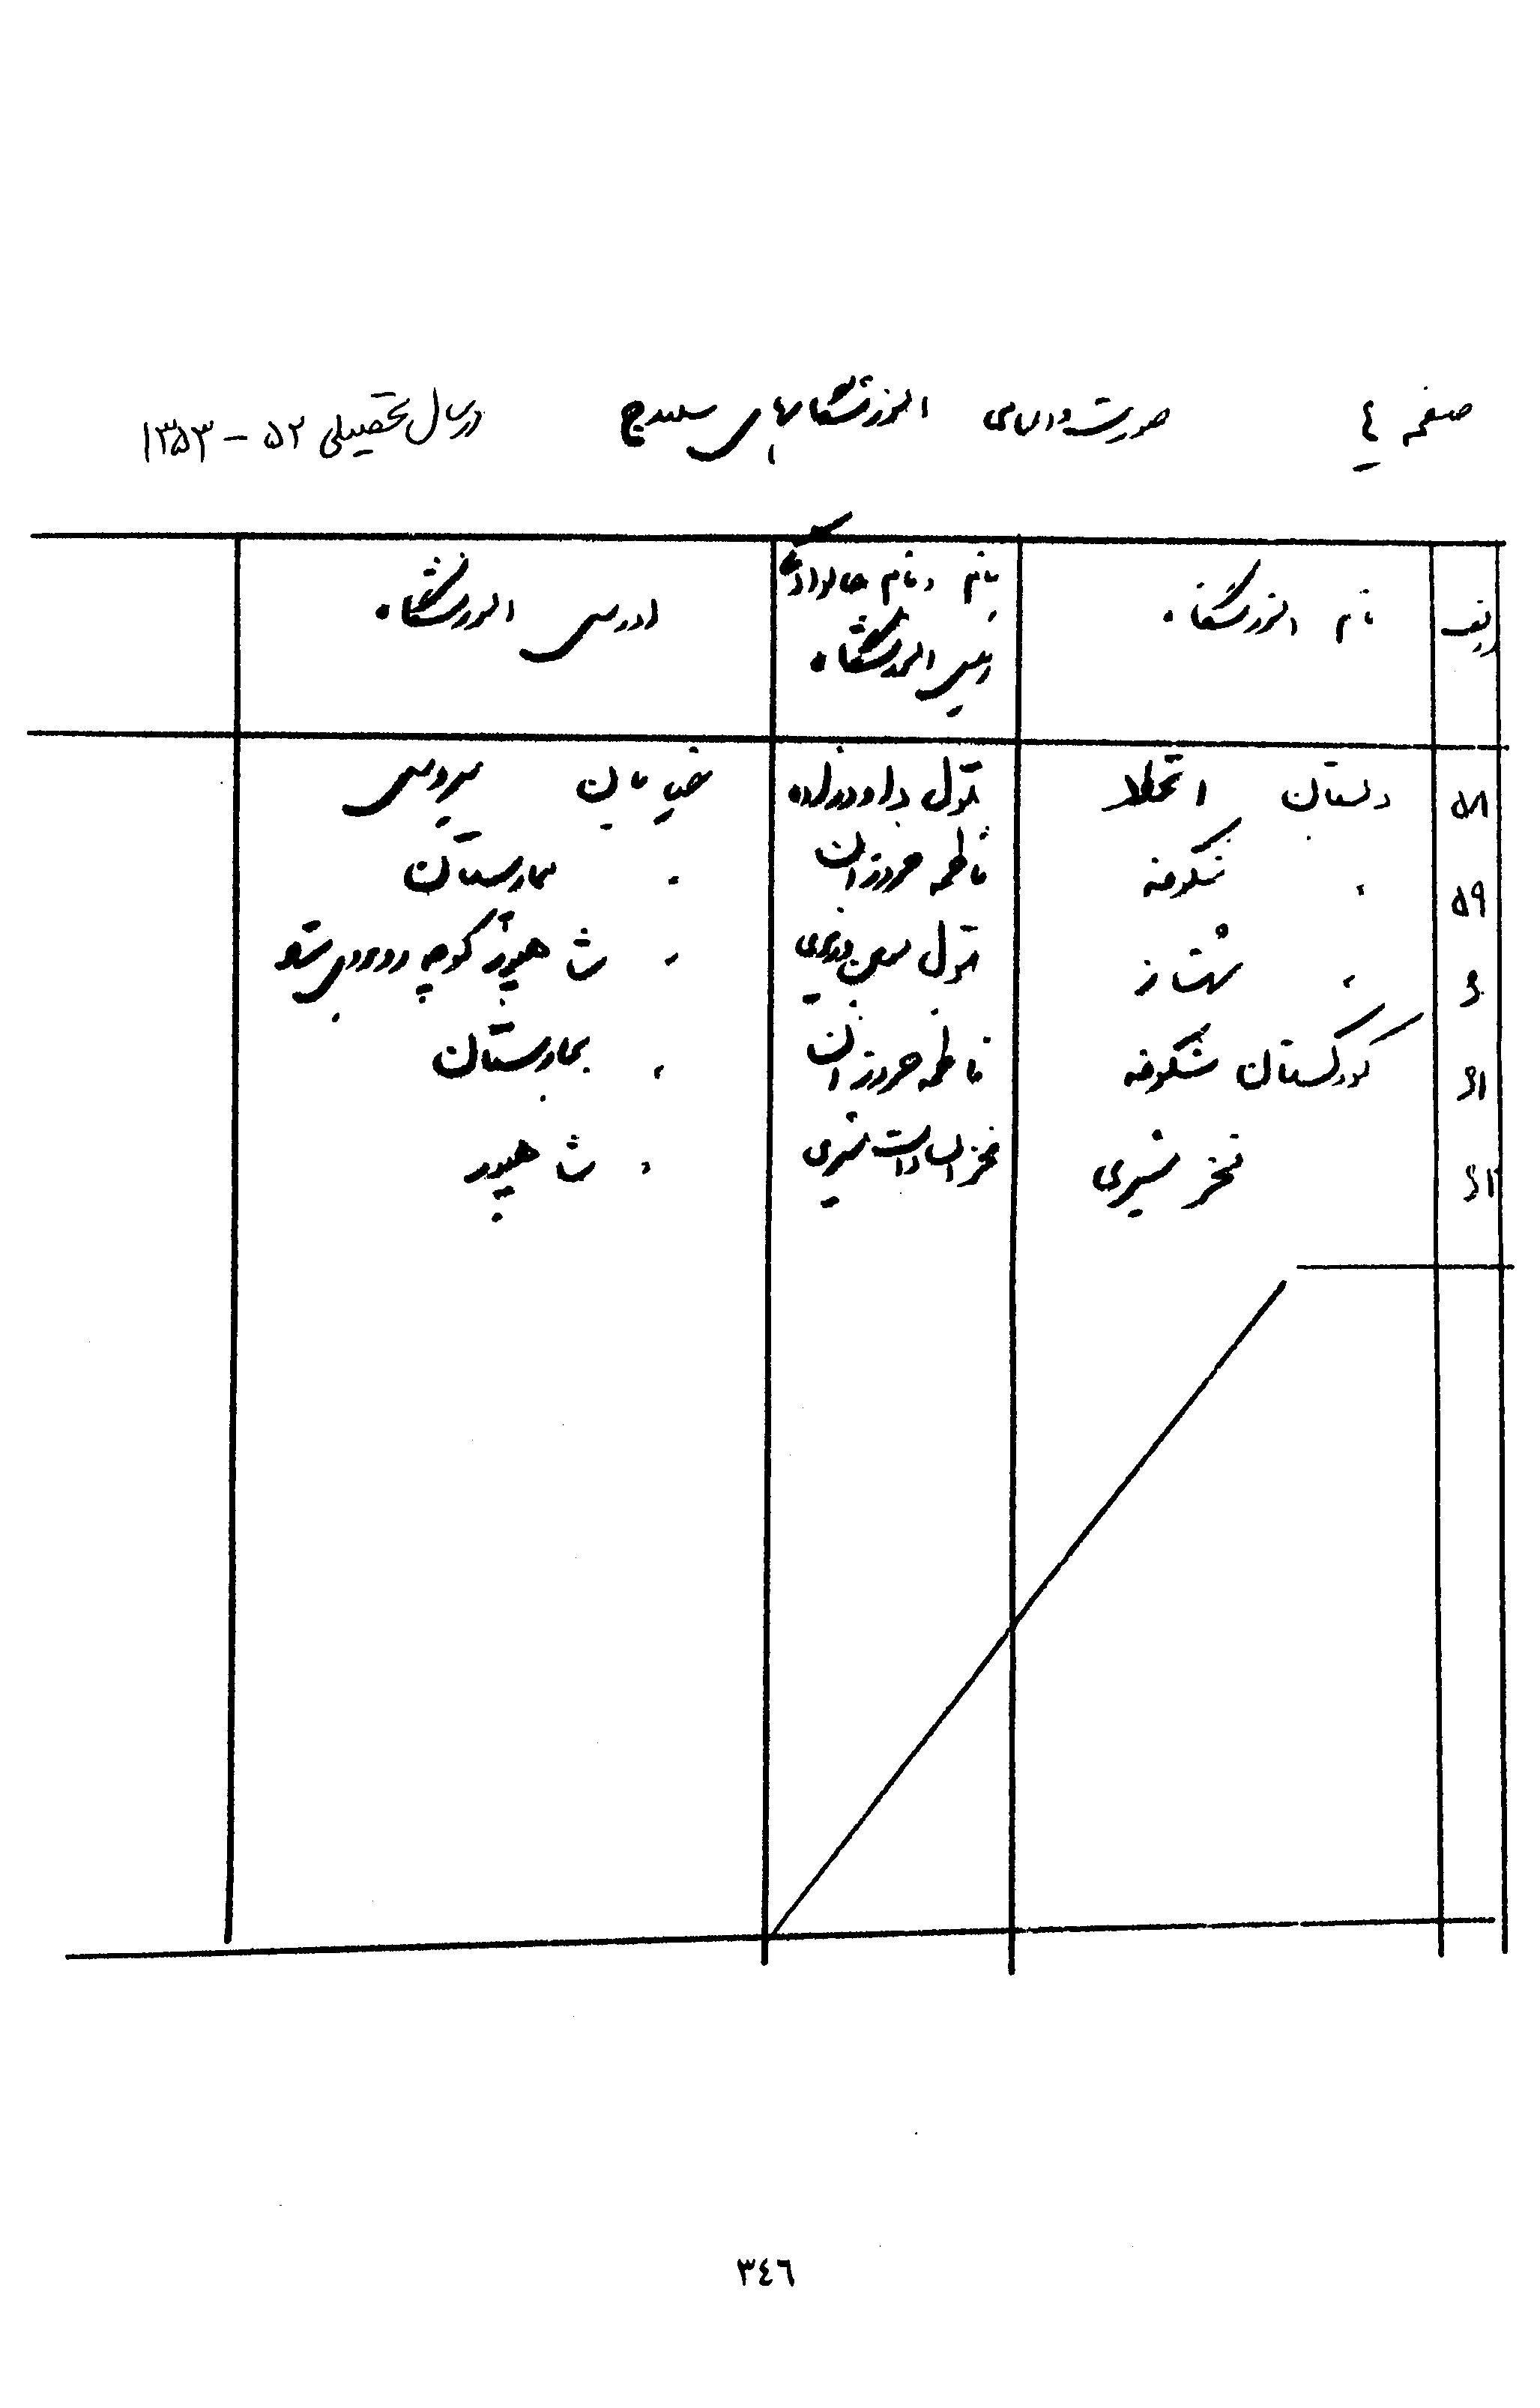 صفحه ٤ صورت و اسامی آموزشگاههای سنندج در سال تحصیلی ۵۲ - ۱۳۵۳
ردیف نام آموزشگاه نام و نام خانوادگی رئیس آموزشگاه آدرس آموزشگاه
۵۸ دبستان بتول داودزاده خیابان سیروس
۵۹ " شکوفه فاطمه فروزان " بیمارستان
۶۰ " مهناز بتول " شاهپور کوچه روبروی
۶۱ کودکستان شکوفه فاطمه فروزان " بیمارستان
۶۲ فخر شیری فخرالسادات شیری " شاهپور
٣٤٦